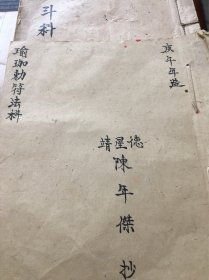 斗科
庚午年𰻞
靖星德
陳年傑抄
瑜珈勅符法科